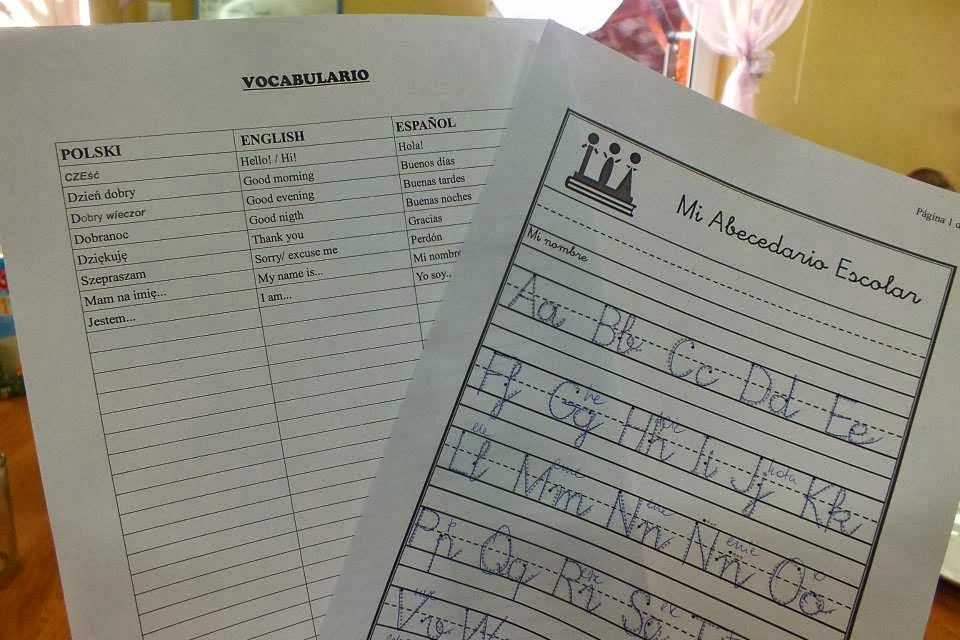 VOCABULARIO
POLSKI ENGLISH ESPAÑOL
CZEŚĆ Hello! / Hi! Hola!
Dzień dobry Good morning Buenos días
Dobry wieczor Good evening Buenas tardes
Dobranoc Good nigth Buenas noches
Dziękuję Thank you Gracias
Szepraszam Sorry/ excuse me Perdón
Mam na imię... My name is... Mi nombre
Jestem... I am... Yo soy..
Página 1 d
Mi Abecedario Escolar
Mi nombre
Aa Bb Cc Dd Ee
Ff Gg Hh Ii Jj Kk
Ll Mm Nn Ññ Oo
Pp Qq Rr Ss
Vv W